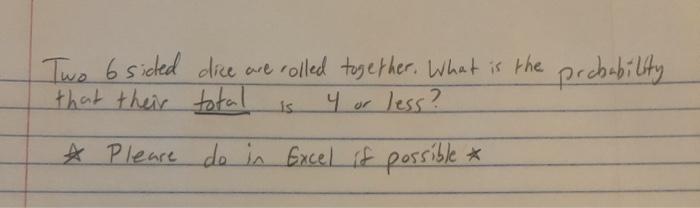 Two 6 sided dice are rolled together. What is the probability
that their total is 4 or less?
☆ Please do in Excel if possible *